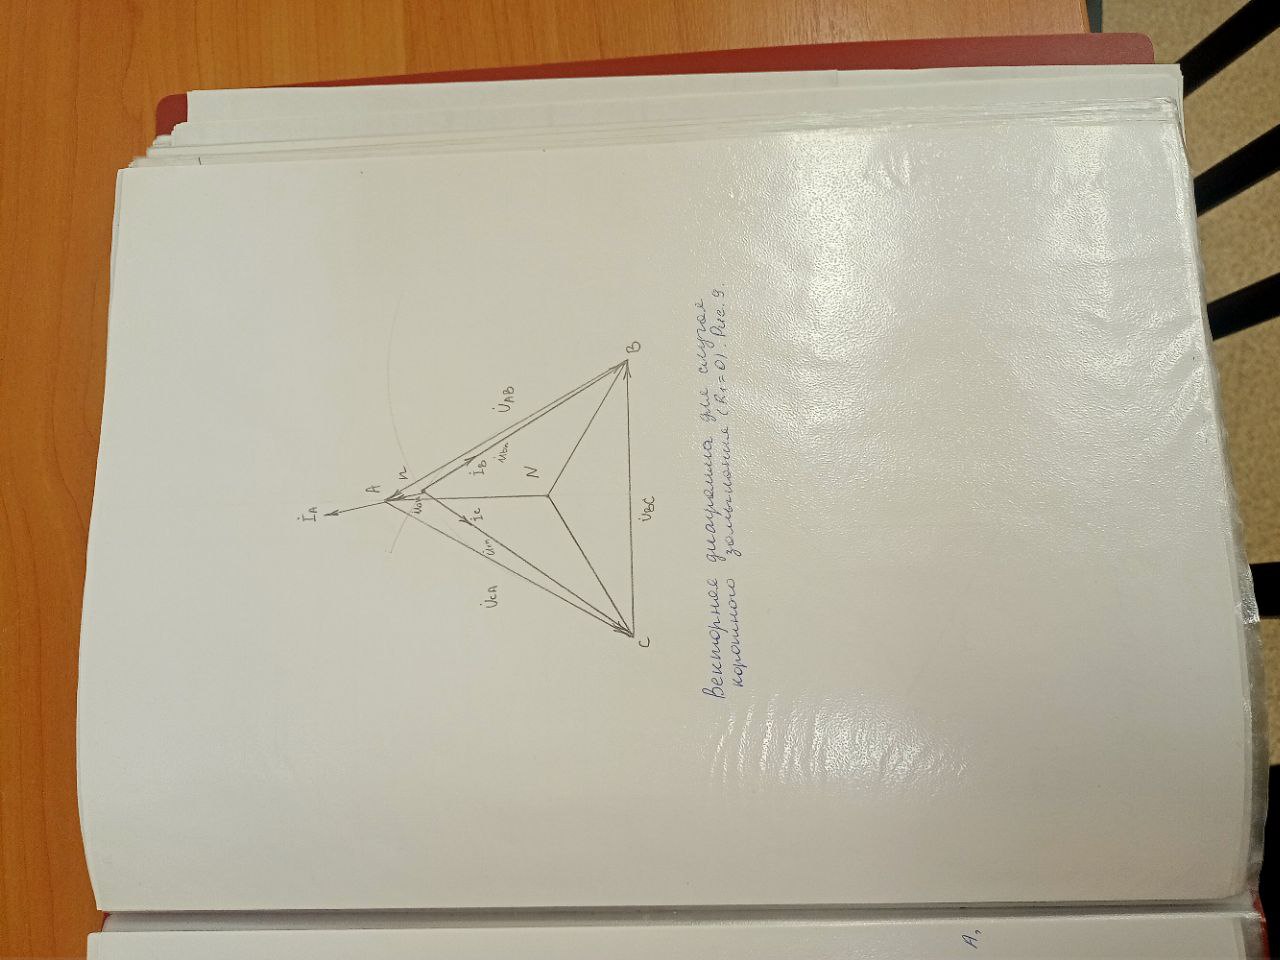 İA
A
n
U̇An
U̇CA
U̇Cn
İC
İB
U̇Bn
U̇AB
N
C
B
U̇BC
Векторная диаграмма для случая
короткого замыкания (R1=0). Рис. 9.
А,